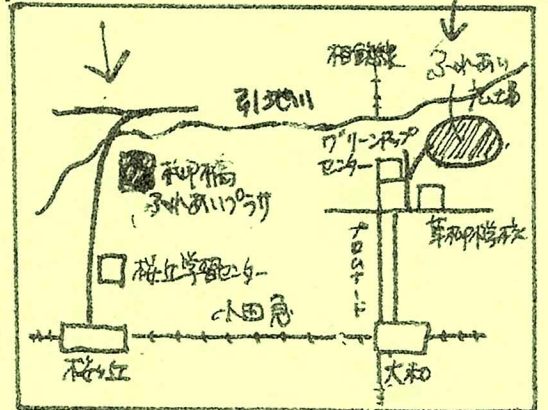 相鉄線
ふれあい
広場
引地川
グリーンアップ
センター
柳橋
ふれあいプラザ
草柳小学校
桜丘学習センター
プロムナード
小田急
桜ヶ丘
大和